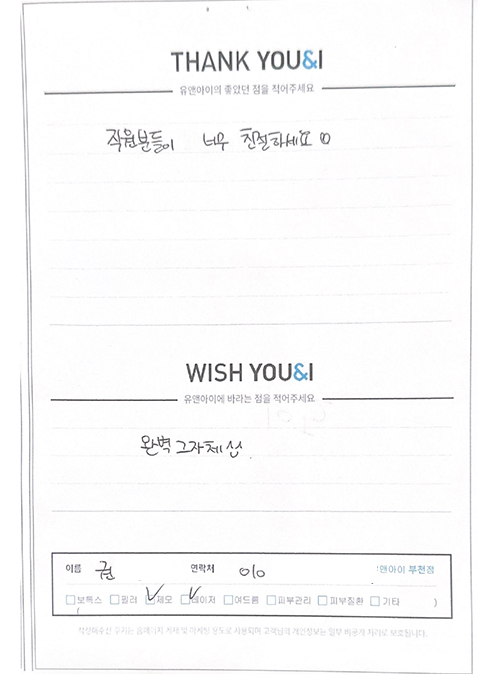 THANK YOU&I
유앤아이의 좋았던 점을 적어주세요
직원분들이 너무 친절하세요
WISH YOU&I
유앤아이에 바라는 점을 적어주세요
완벽 그자체심
이름 권 연락처 010 앤아이 부천점
보톡스 필러 제모 레이저 여드름 피부관리 피부질환 기타 )
(